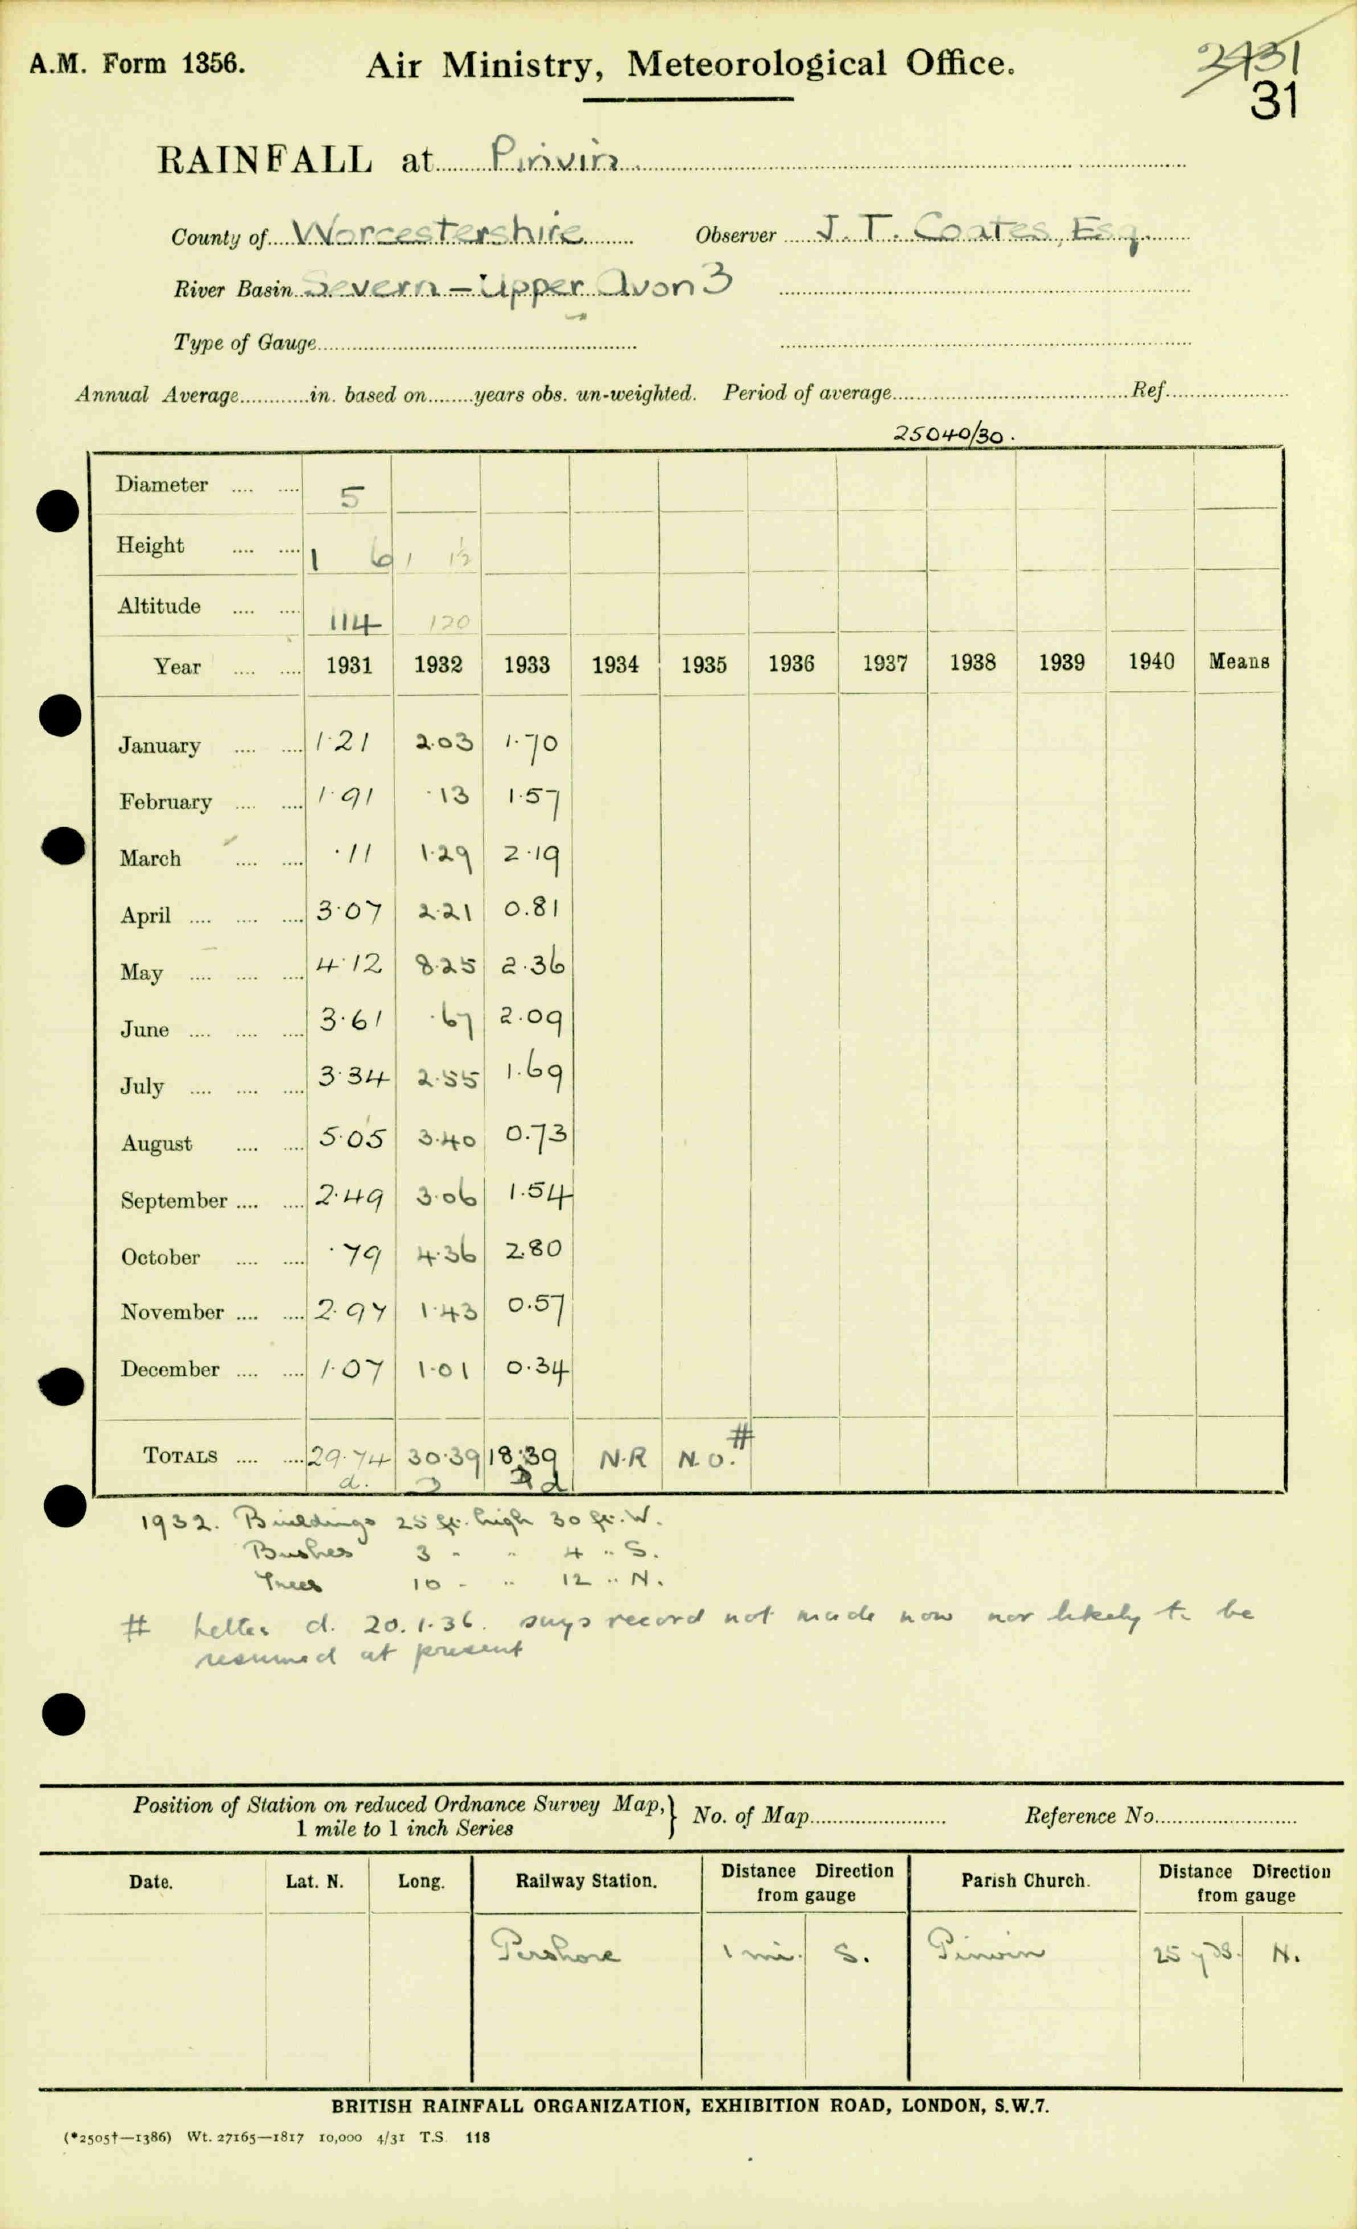 A.M. Form 1356.
Air Ministry, Meteorological Office.
2431
31
RAINFALL at Pinvin
County of Worcestershire Observer J. T. Coates, Esq.
River Basin Severn – Upper Avon 3
Type of Gauge
Annual Average in. based on years obs. un-weighted. Period of average Ref.
25040/30.
Diameter 5
Height 1 6 1 1½
Altitude 114 120
Year 1931 1932 1933 1934 1935 1936 1937 1938 1939 1940 Means
January 1·21 2·03 1·70
February 1·91 ·13 1·57
March ·11 1·29 2·19
April 3·07 2·21 0.81
May 4·12 8·25 2·36
June 3·61 ·67 2·09
July 3·34 2·55 1·69
August 5·05 3·40 0.73
September 2·49 3·06 1·54
October ·79 4·36 2.80
November 2·97 1·43 0.57
December 1·07 1·01 0·34
TOTALS 29·74 30·39 18·39 N.R N.O. #
d. d
1932. Buildings 25 ft. high 30 ft. W.
Bushes 3 " " 4 " S.
Trees 10 " " 12 " N.
# Letter d. 20.1.36. says record not made now nor likely to be
resumed at present
Position of Station on reduced Ordnance Survey Map,} No. of Map Reference No.
1 mile to 1 inch Series
Date. Lat. N. Long. Railway Station. Distance Direction from gauge Parish Church. Distance Direction from gauge
Pershore 1 mi. S. Pinvin 25 yds. N.
BRITISH RAINFALL ORGANIZATION, EXHIBITION ROAD, LONDON, S.W.7.
(*2505†—1386) Wt. 27165—1817 10,000 4/31 T.S. 118